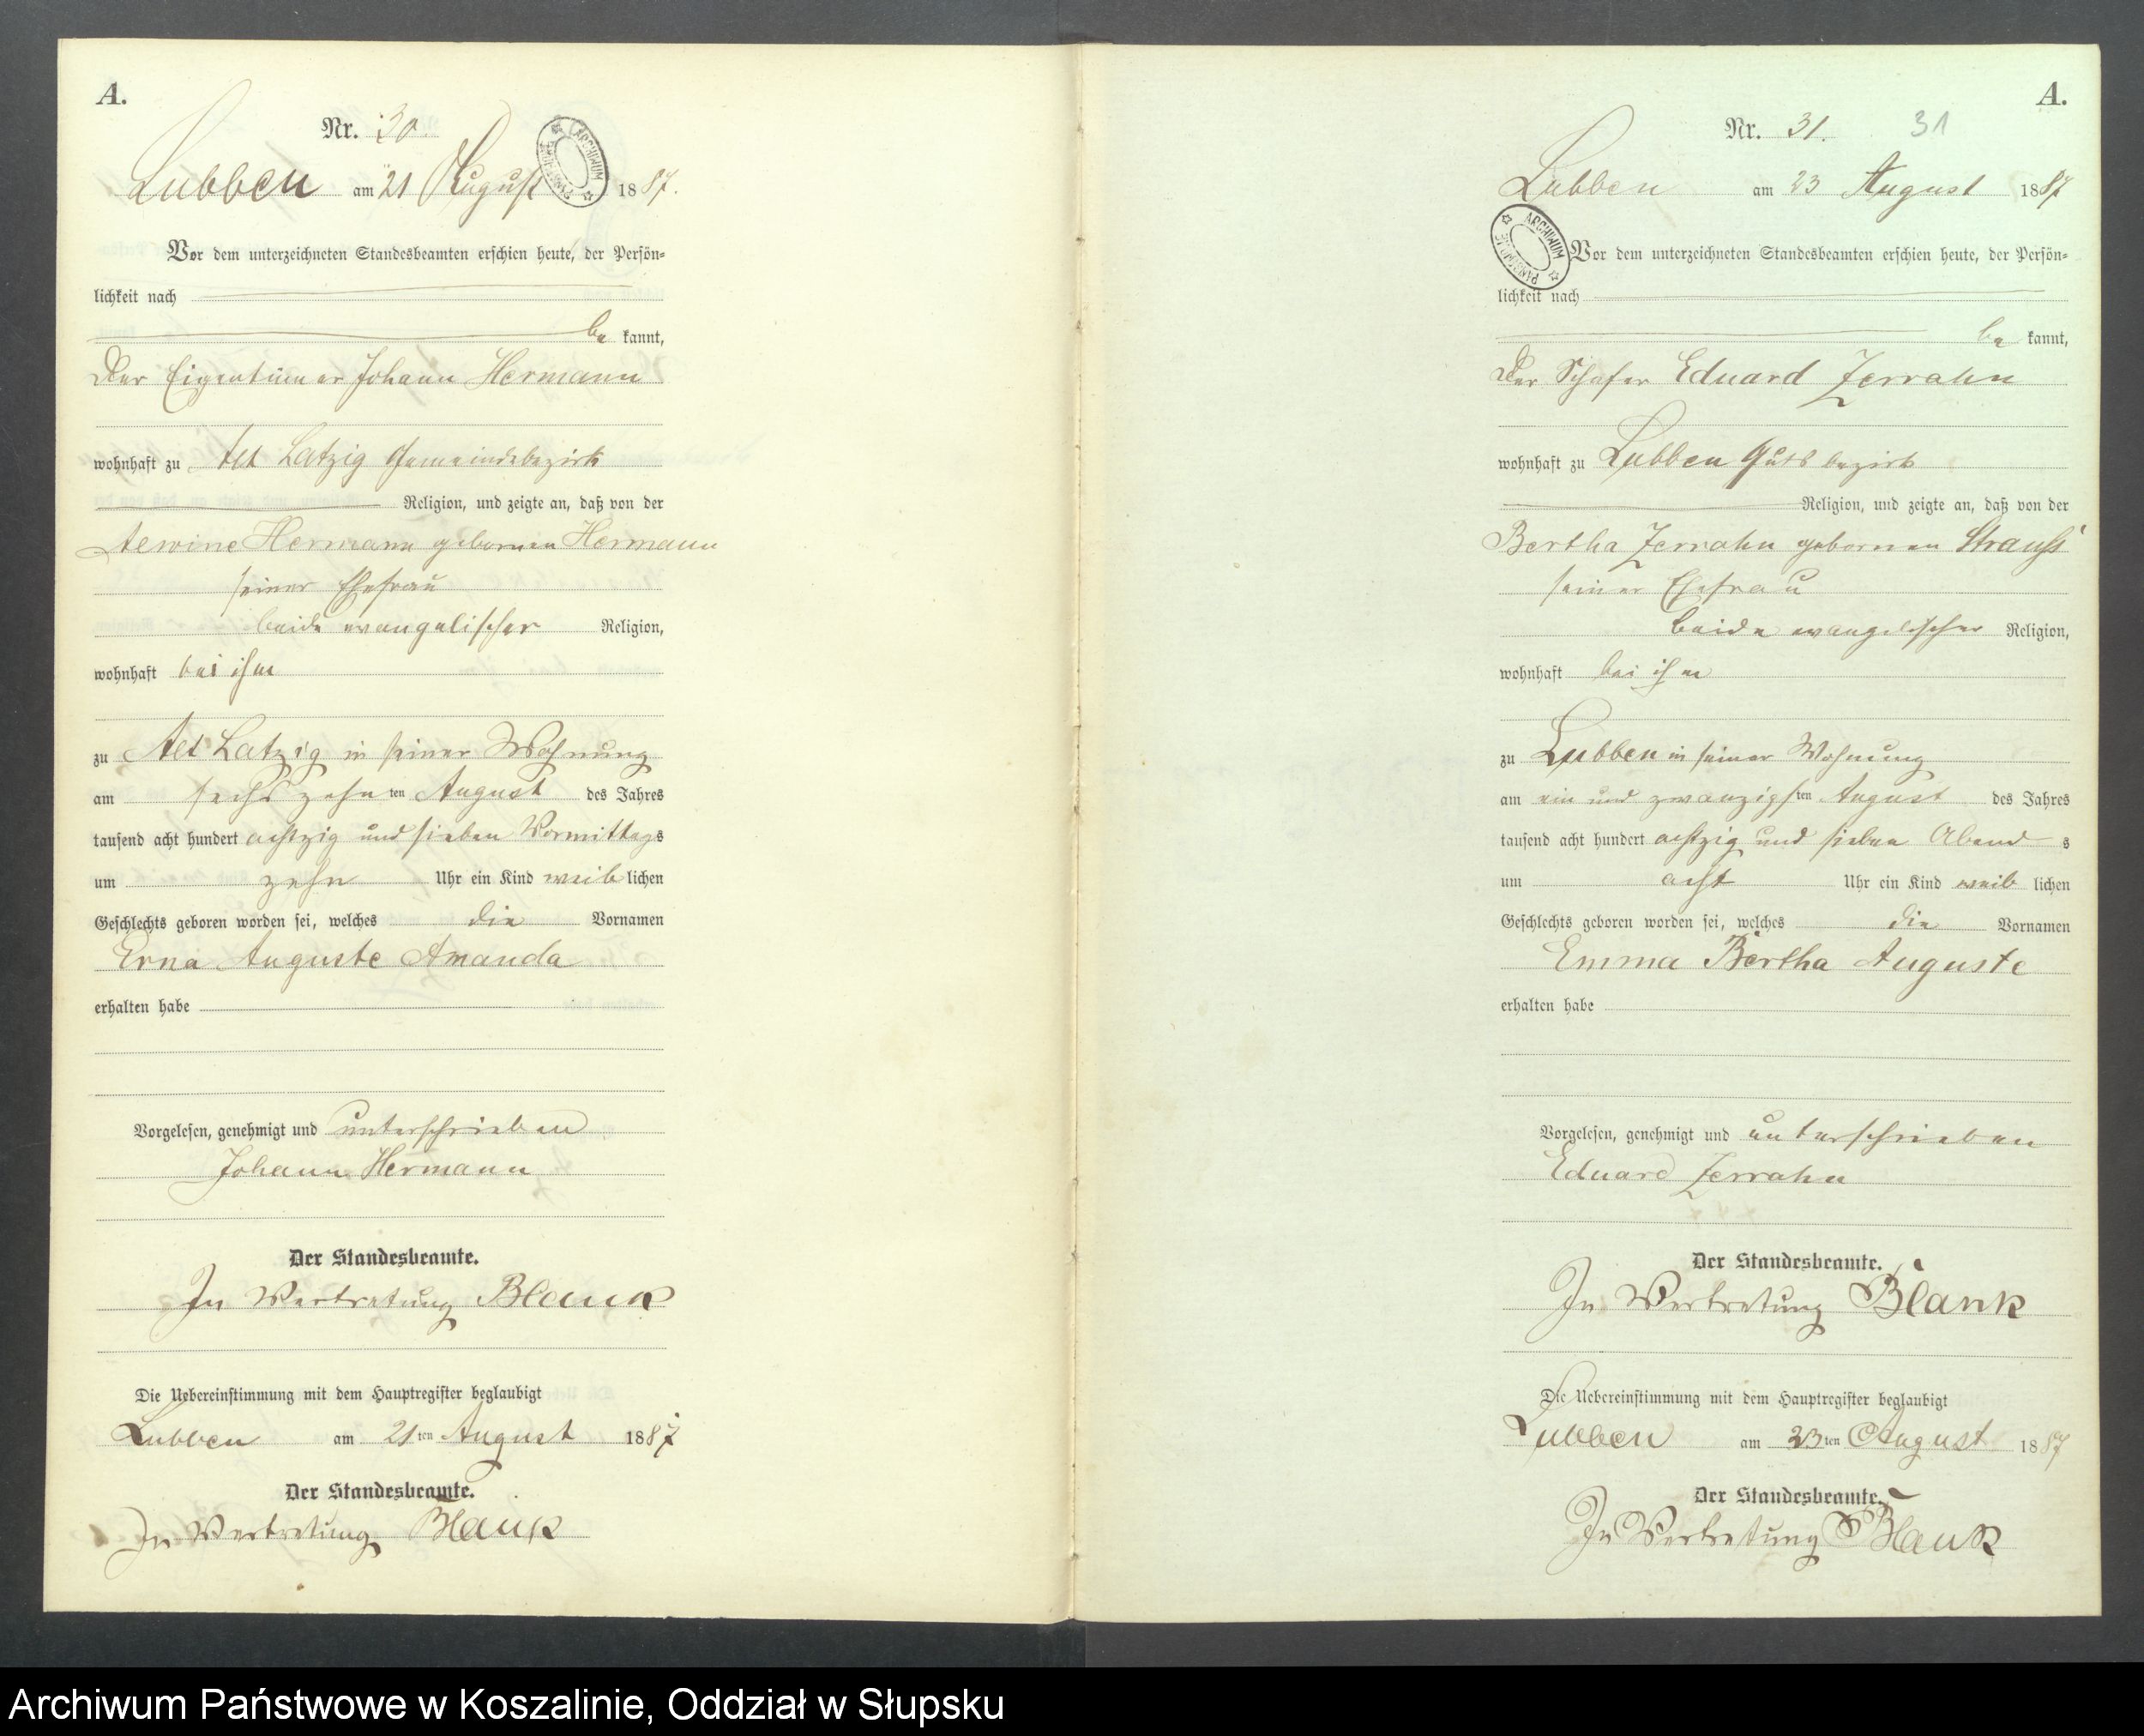 A.
Nr. 30.
Lubben am 21 August 1887.
Vor dem unterzeichneten Standesbeamten erschien heute, der Persön=
lichkeit nach
be kannt,
Der Eigentümer Johann Hermann
wohnhaft zu Alt Latzig Gemeindebezirk
Religion, und zeigte an, daß von der
Alwine Hermann gebornen Hermann
seiner Ehefrau
beide evangelischer Religion,
wohnhaft bei ihm
zu Alt Latzig in seiner Wohnung
am sechszehn ten August des Jahres
tausend acht hundert achtzig und sieben Vormittags
um zehn Uhr ein Kind weib lichen
Geschlechts geboren worden sei, welches die Vornamen
Erna Auguste Amanda
erhalten habe
Vorgelesen, genehmigt und unterschrieben
Johann Hermann
Der Standesbeamte.
In Vertretung Blank
Die Uebereinstimmung mit dem Hauptregister beglaubigt
Lubben am 21ten August 1887
Der Standesbeamte.
In Vertretung Blank
ARCHIWUM PAŃSTWOWE
A.
Nr. 31. 31
Lubben am 23 August 1887
ARCHIWUM PAŃSTWOWE
Vor dem unterzeichneten Standesbeamten erschien heute, der Persön=
lichkeit nach
be kannt,
Der Schäfer Eduard Zerrahn
wohnhaft zu Lubben Gutsbezirk
Religion, und zeigte an, daß von der
Bertha Zerrahn gebornen Strauß
seiner Ehefrau
beide evangelischer Religion,
wohnhaft bei ihm
zu Lubben in seiner Wohnung
am ein und zwanzigsten August des Jahres
tausend acht hundert achtzig und sieben Abend s
um acht Uhr ein Kind weib lichen
Geschlechts geboren worden sei, welches die Vornamen
Emma Bertha Auguste
erhalten habe
Vorgelesen, genehmigt und unterschrieben
Eduard Zerrahn
Der Standesbeamte.
In Vertretung Blank
Die Uebereinstimmung mit dem Hauptregister beglaubigt
Lubben am 23ten August 1887
Der Standesbeamte.
In Vertretung Blank
Archiwum Państwowe w Koszalinie, Oddział w Słupsku